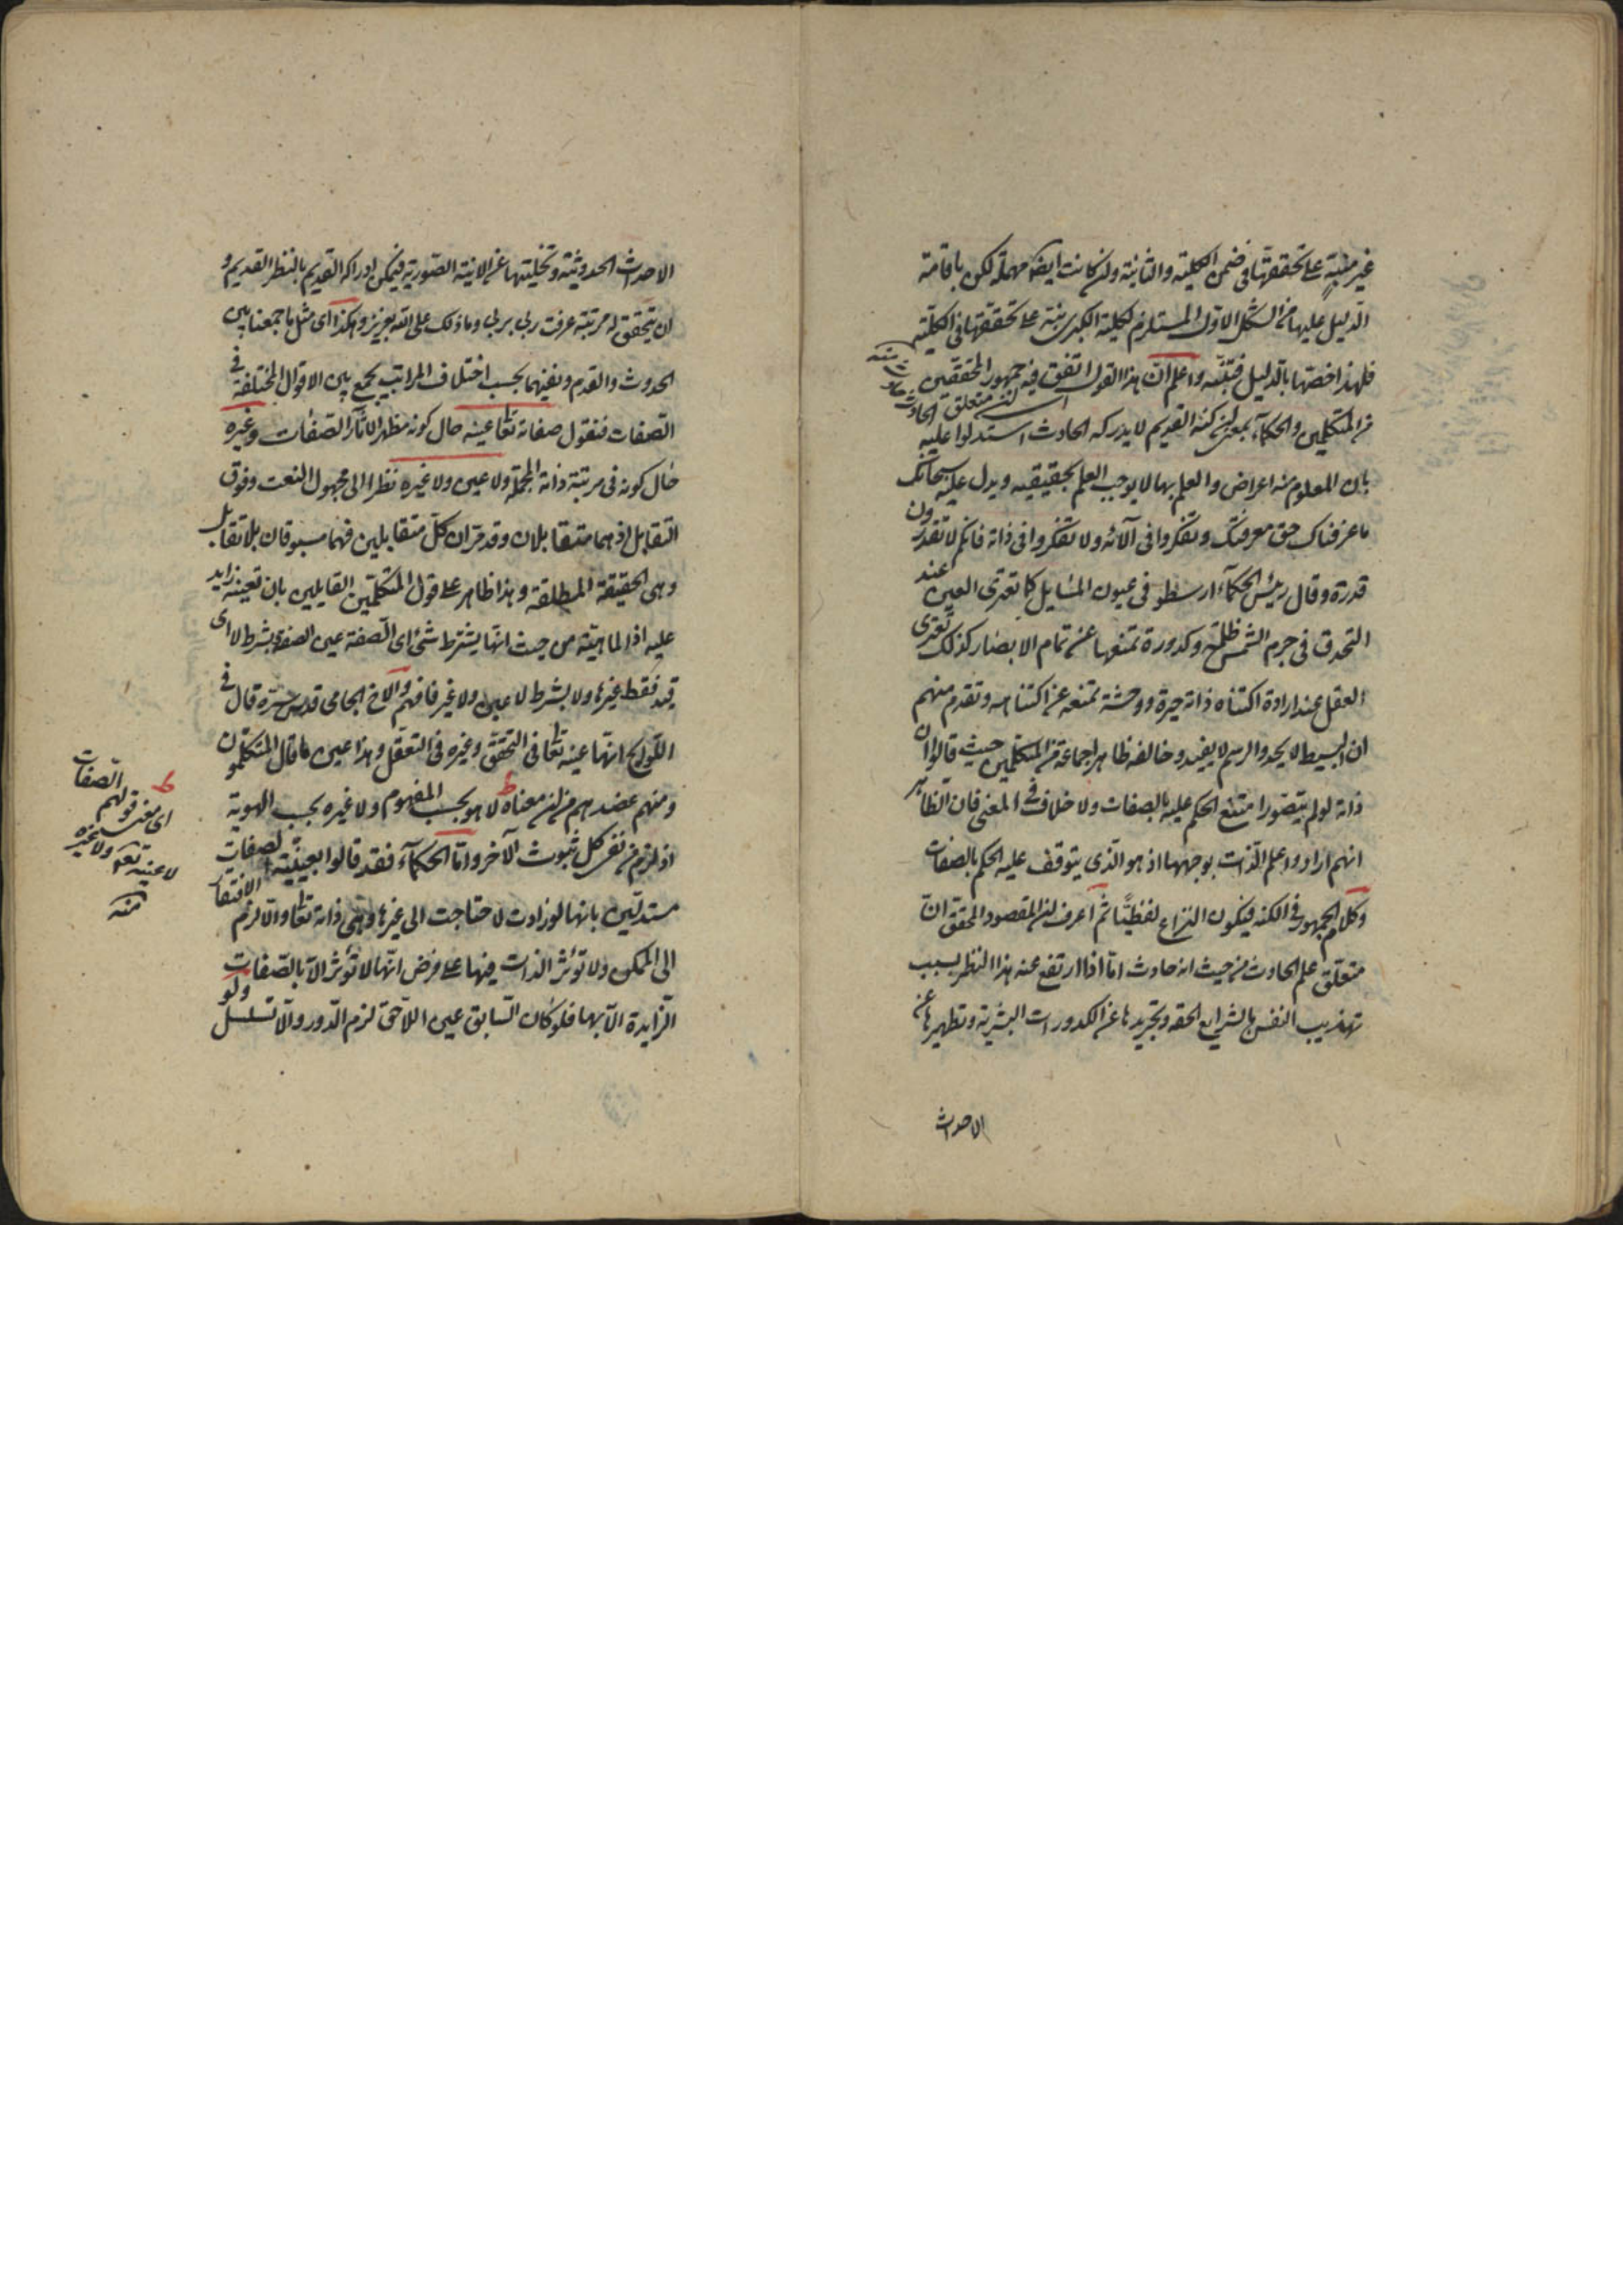 غير مبنية على تحققها في ضمن الكلية والثانية وان كانت ايضا مهملة لكن باقامة
الدليل عليها من الشكل الاول المستلزم لكلية الكبرى نبه على تحققها في الكلية
فلهذا خصتها بالدليل فتنبه واعلم ان هذا القول اتفق فيه جمهور المحققين
من المتكلمين والحكماء بمعنى ان كنه القديم لا يدركه الحادث استدلوا عليه
بان المعلوم منه اعراض والعلم بها لا يوجب العلم بحقيقيه ويدل عليه سبحانك
ما عرفناك حق معرفتك وتفكروا في آلائه ولا تفكروا في ذاته فانكم لا تقدرون
قدرة وقال رئيس الحكماء ارسطو في عيون المسايل كما تعترى العين عند
التحدق في جرم الشمس ظلمة وكدورة تمنعها عن تمام الابصار كذلك تعترى
العقل عند ارادة اكتناه ذاته حيرة ووحشة تمنعه عن اكتناهه وتقدم منهم
ان البسيط لا يحد والرسم لا يفيد وخالفه ظاهرا جماعة من المتكلمين حيث قالوا ان
ذاته لو لم يتصور امتنع الحكم عليه بالصفات ولا خلاف في المعنى فان الظاهر
انهم ارادوا علم الذات بوجهها اذ هو الذى يتوقف عليه الحكم بالصفات
وكلام الجمهور في الكنه فيكون النزاع لفظيا ثم اعرف ان المقصود المحقق ان
متعلق علم الحادث من حيث انه حادث اما اذا ارتفع عنه هذا النظر بسبب
تهذيب النفس بالشرايع الحقه وتجريدها عن الكدورات البشرية وتطهيرها عن
الاحداث
الاحداث الحدوثية وتخليتها عن الانية الصورية فيمكن ادراكه القديم بالنظر القديم و
ان يتحقق له مرتبة عرفت ربى بربى وما ذلك على الله بعزيز وهكذا اى مثل ما جمعنا بين
الحدوث والقدم ونفيهما بحسب اختلاف المراتب يجمع بين الاقوال المختلفة في
الصفات فنقول صفاته تعا عينه حال كونه مظهر الآثار الصفات وغيره
حال كونه في مرتبة ذاته المجملة ولا عين ولا غيره نظرا الى مجهول النعت وفوق
التقابل اذ هما متقابلان وقد مر ان كل متقابلين فهما مسبوقان بلا تقابل
وهى الحقيقة المطلقة وهذا ظاهر على قول المتكلمين القايلين بان تعينه زايد
عليه اذ الماهية من حيث انها يشترط شئ اى الصفة عين الصفة وبشرط لا اى
قيد فقط غيرها ولا بشرط لا عين ولا غير فافهم والاخ الجامى قدس سره قال في
اللوايح انها عينه تعا في التحقق وغيره في التعقل وهذا عين ما قال المتكلمون
ومنهم عضدهم من ان معناه لا هو بحسب المفهوم ولا غيره بحسب الهوية
اذ لزم من نفى كل ثبوت الآخر واما الحكماء فقد قالوا بعينية الصفات
مستدلين بانها لو زادت لاحتاجت الى غيرها وهى ذاته تعا والا لزم الافتقار
الى الممكن ولا تؤثر الذات فيها على فرض انها لا تؤثر الا بالصفات
الزايدة الا بها فلو كان السابق عين اللاحق لزم الدور والا تسلسل ولو
اى معنى قولهم الصفات
لا عينه تعم ولا غيره
منه